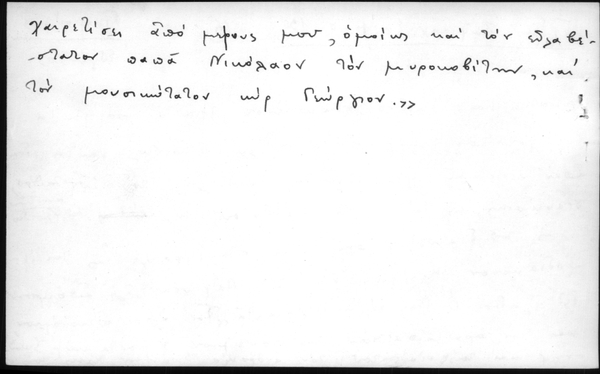 χαιρετίσει ἀπό μέρους μου, ὁμοίως καί τόν εὐλαβέ-
-στατον παπᾶ Νικόλαον τόν μυροκοβίτην, καί
τόν μουσικώτατον κύρ Γεώργιον.»